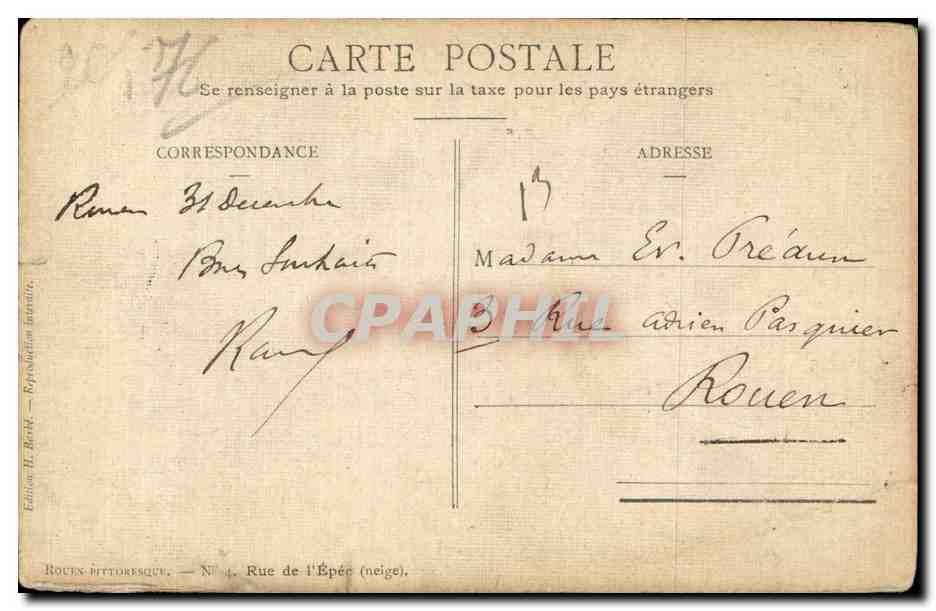 CARTE POSTALE
Se renseigner à la poste sur la taxe pour les pays étrangers
CORRESPONDANCE
Rouen 31 Décembre
Bons Souhaits
ADRESSE
13
Madame Ev. Prédun
3 Rue Adrien Pasquier
Rouen
CPAPHIL
Edition H. — Reproduction Interdite.
ROUEN PITTORESQUE. — N° 4. Rue de l'Épée (neige).